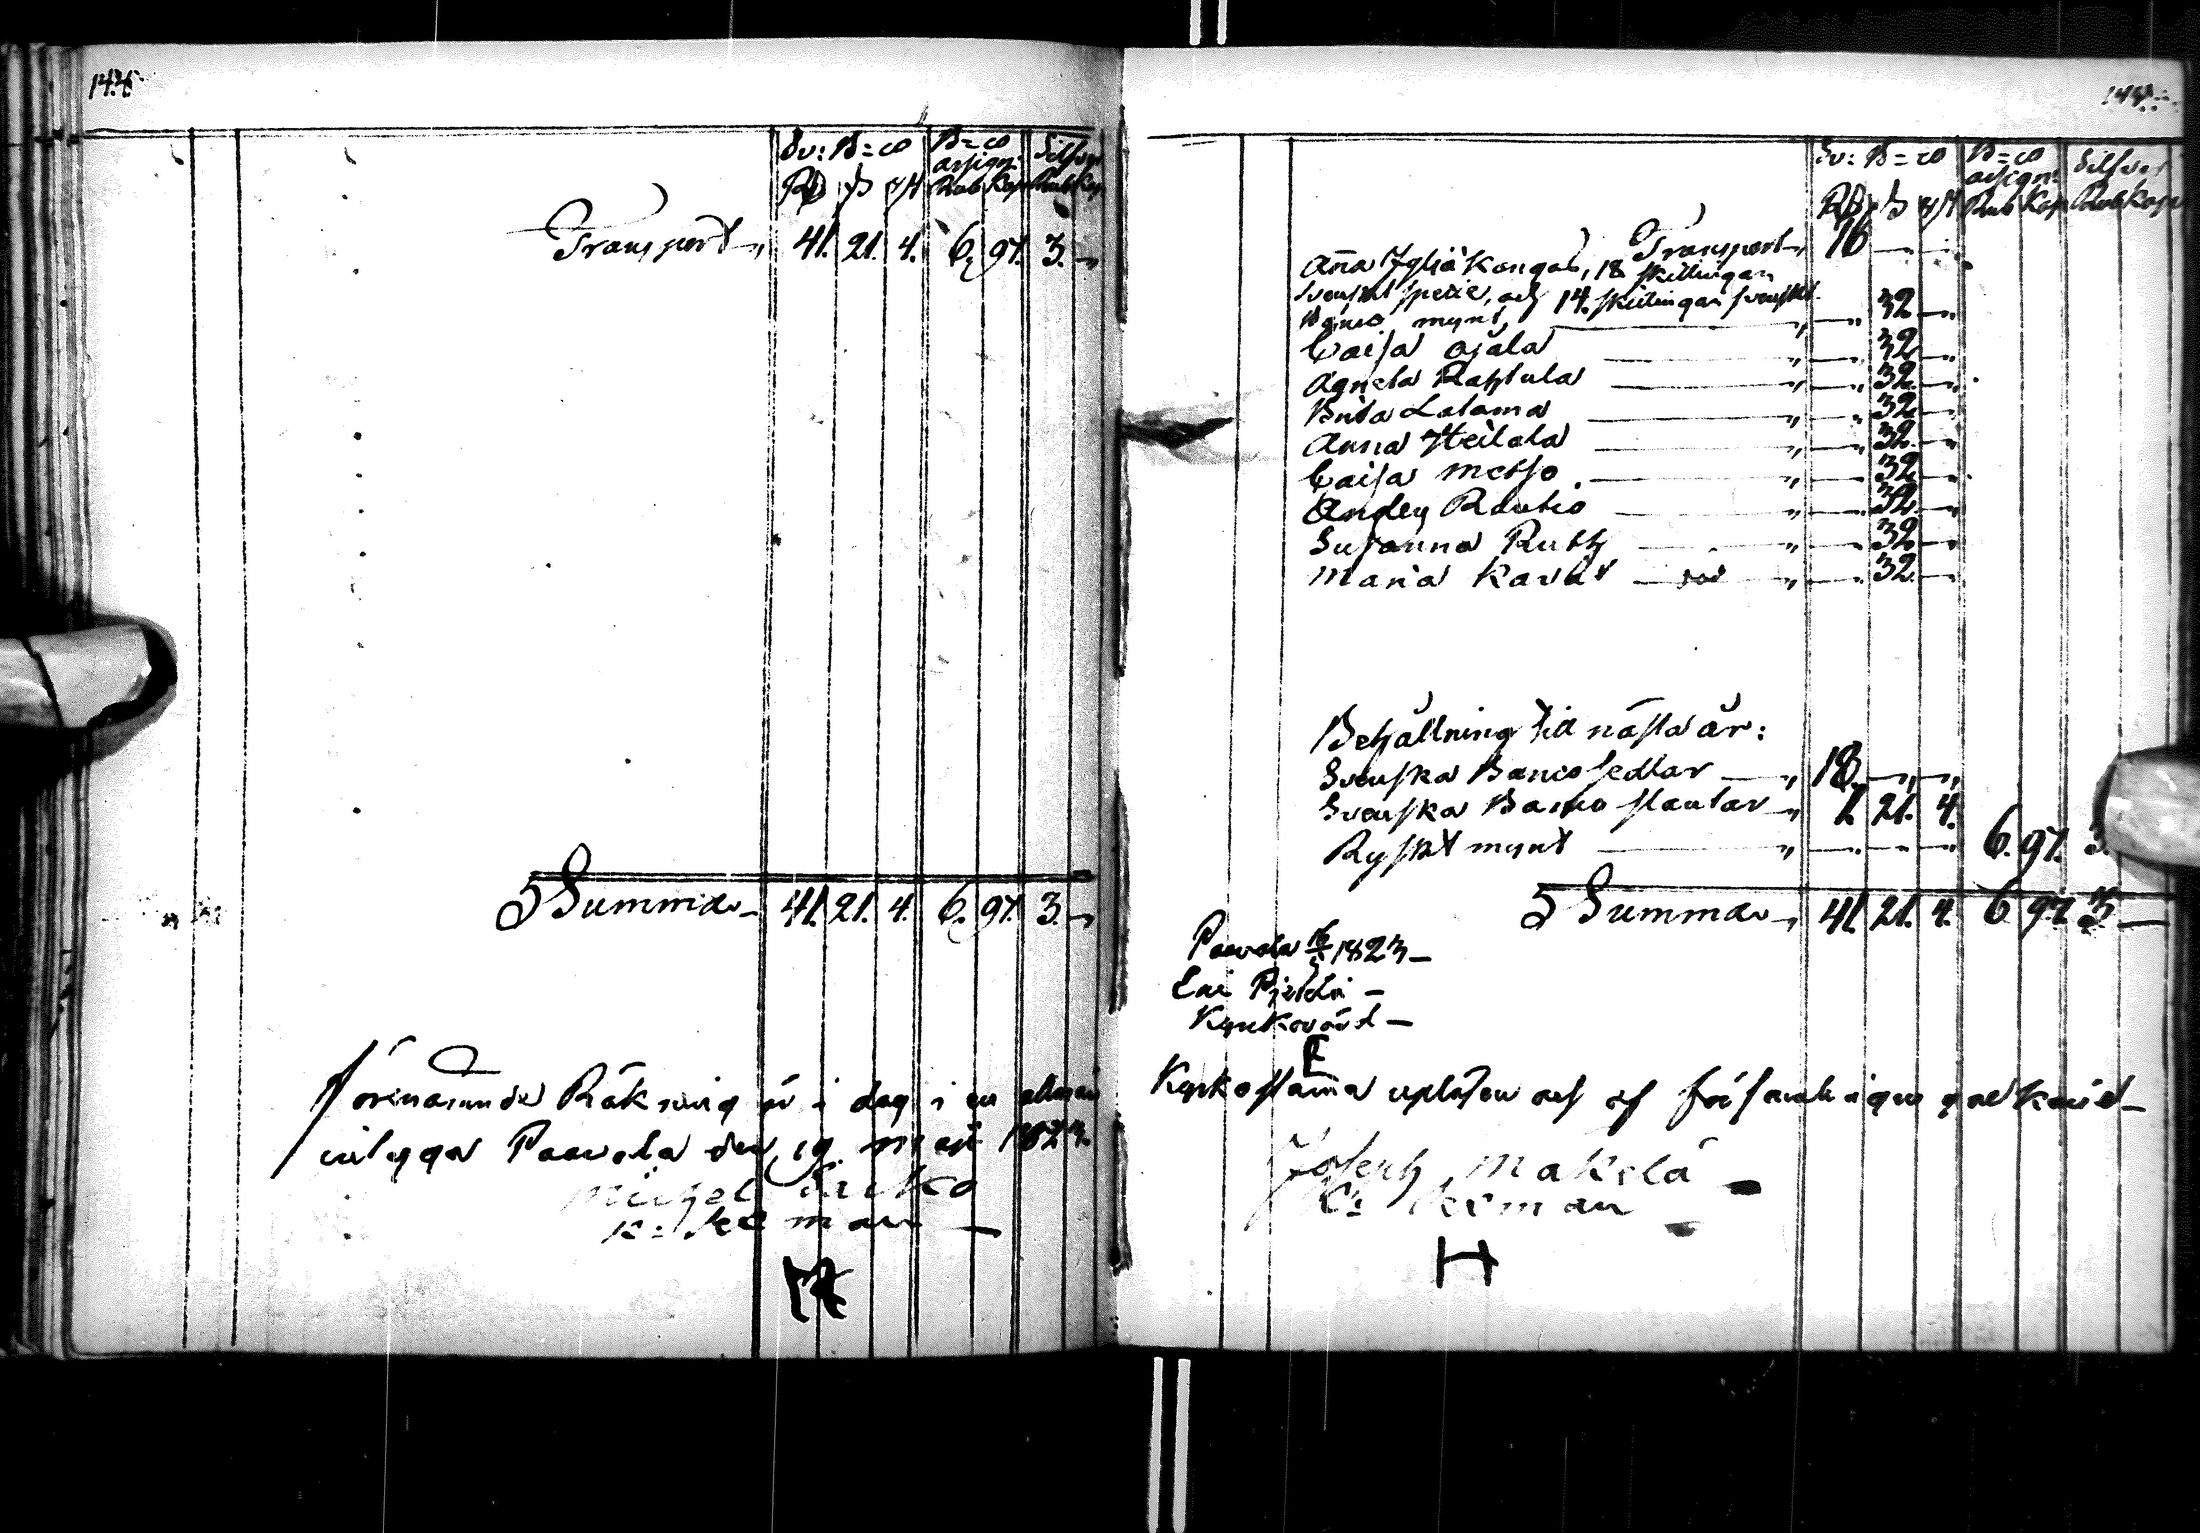 144
Sv: B=co B=co assign: Silfver
RD ß rst Rub Kop Rub Kop
Transport 41. 21. 4. 6. 97. 3.
Summa 41. 21. 4. 6. 97. 3.
Förenämnde Räkning är i dag i en allmän
Paavola den 19 Maji 1823.
Michel
K: Sexman
144
Sv: B=co B=co assign: Silfver
RD ß rst Rub Kop Rub Kop
Transport 16
Anna Yljäkangas, 18 skillingar
svenskt specie, och 14 skillingar svenskt
Banco mynt, 32
Caisa Ojala 32
Agneta Rahtula 32
Brita Latama 32
Anna Heilala 32
Caisa Metso 32
Anders Rautio 32
Susanna Ruth 32
Maria Karut 32
Behållning till nästa år:
Svenska Banco sedlar 18
Svenska Banco slantar 1. 21. 4.
Ryskt mynt 6. 97. 3.
Summa 41. 21. 4. 6. 97. 3.
Paavola 16/5 1823
Kyrkovärd
Kyrkostämma upläsen och af församlingen godkänd
Joseph Makelä
K: Sexman
H